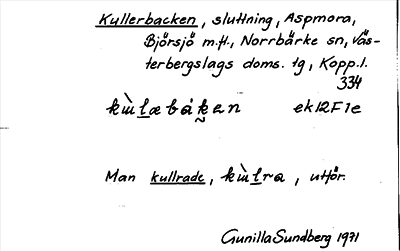 Kullerbacken, sluttning, Aspmora,
Björsjö m.fl., Norrbärke sn, Väs-
terbergslags doms. tg, Kopp.l.
334
ek12F1e
Man kullrade, utför.
Gunilla Sundberg 1971